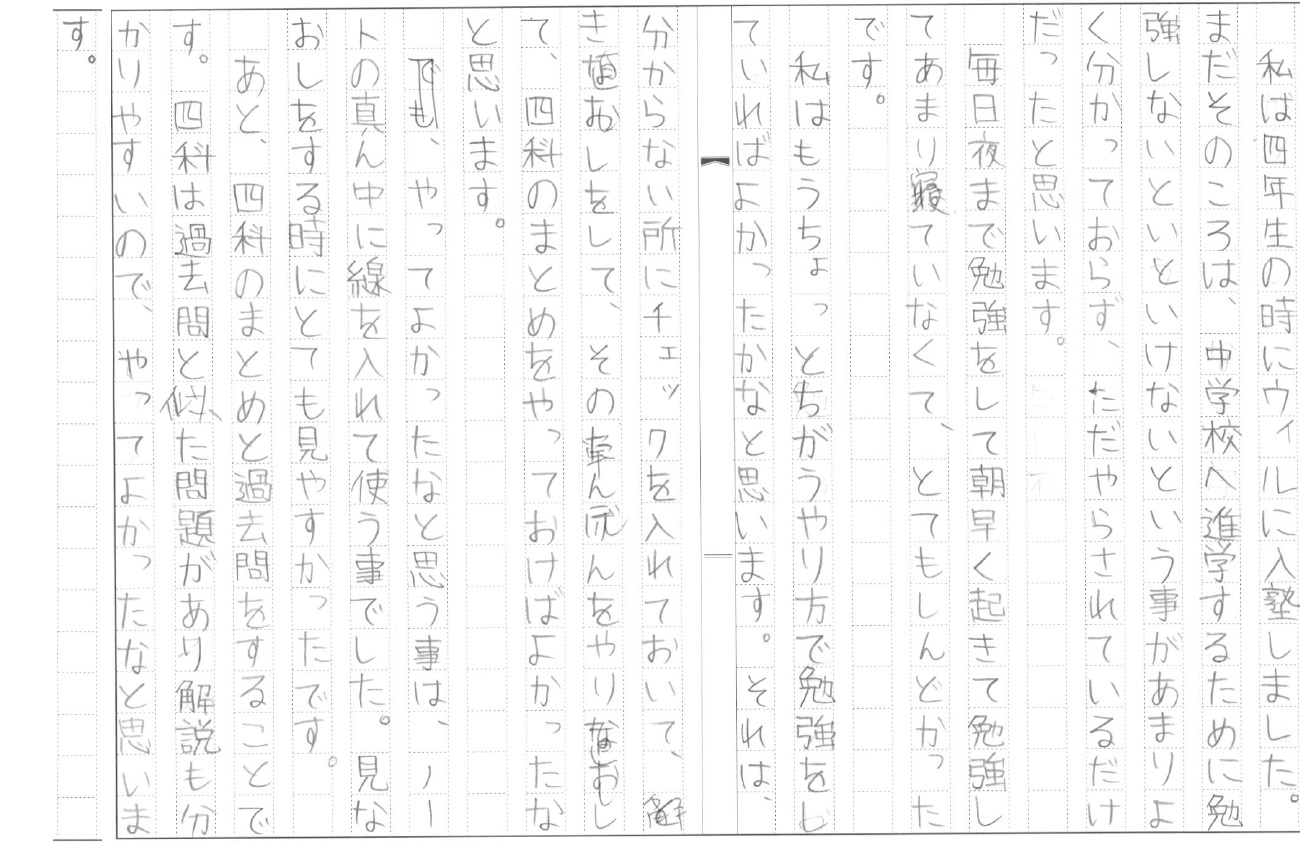 私は四年生の時にウィルに入塾しました。
まだそのころは、中学校へ進学するために勉
強しないといといけないという事があまりよ
く分かっておらず、ただやらされているだけ
だったと思います。
毎日夜まで勉強をして朝早く起きて勉強し
てあまり寝ていなくて、とてもしんどかった
です。
私はもうちょっとちがうやり方で勉強をし
ていればよかったかなと思います。それは、
分からない所にチェックを入れておいて、解
き直おしをして、そのんをやりなおし
て、四科のまとめをやっておけばよかったな
と思います。
でも、やってよかったなと思う事は、ノー
トの真ん中に線を入れて使う事でした。見な
おしをする時にとても見やすかったです。
あと、四科のまとめと過去問をすることで
す。四科は過去問と似た問題があり解説も分
かりやすいので、やってよかったなと思いま
す。